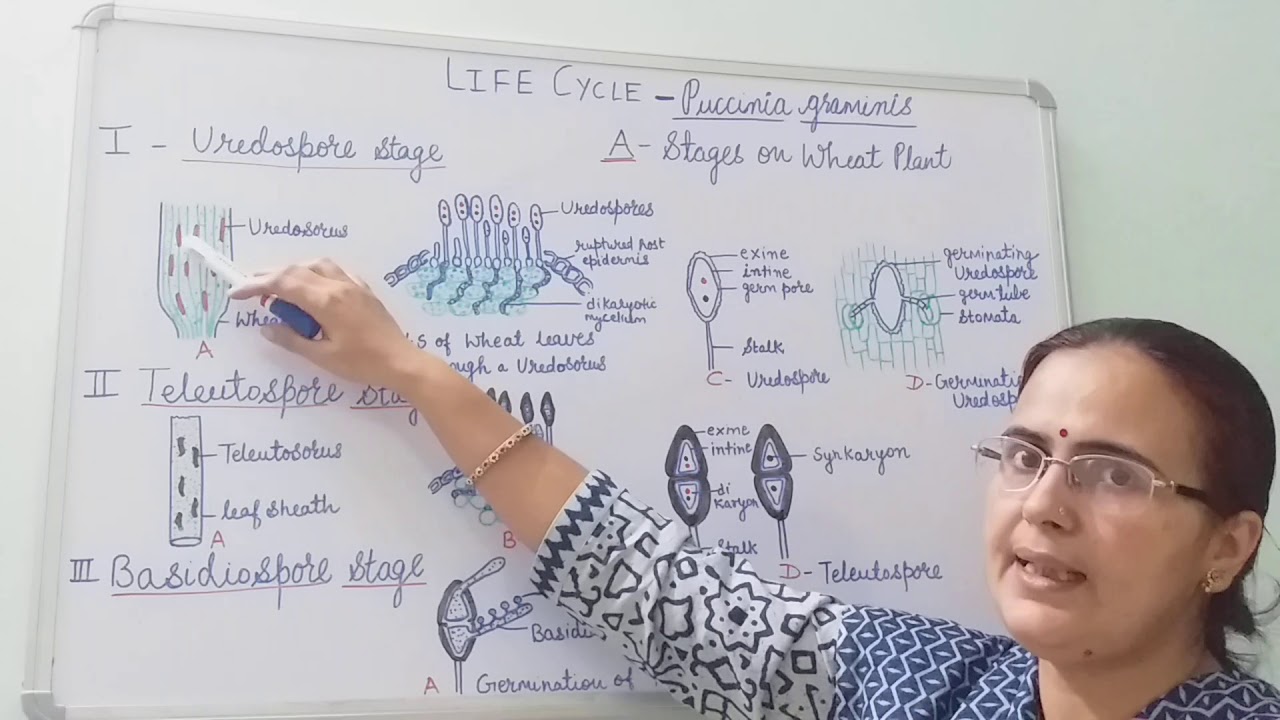 LIFE CYCLE - Puccinia graminis
I - Uredospore stage
A - Stages on Wheat Plant
Uredosorus
A
Uredospores
ruptured host
epidermis
dikaryotic
mycelium
of Wheat leaves
a Uredosorus
exine
intine
germ pore
Stalk
C- Uredospore
germinating
Uredospore
germ tube
Stomata
D-
II Teleutospore
Teleutosorus
leaf sheath
A
B
exine
intine
di
karyon
Stalk
Synkaryon
D- Teleutospore
III Basidiospore stage
A Germination of